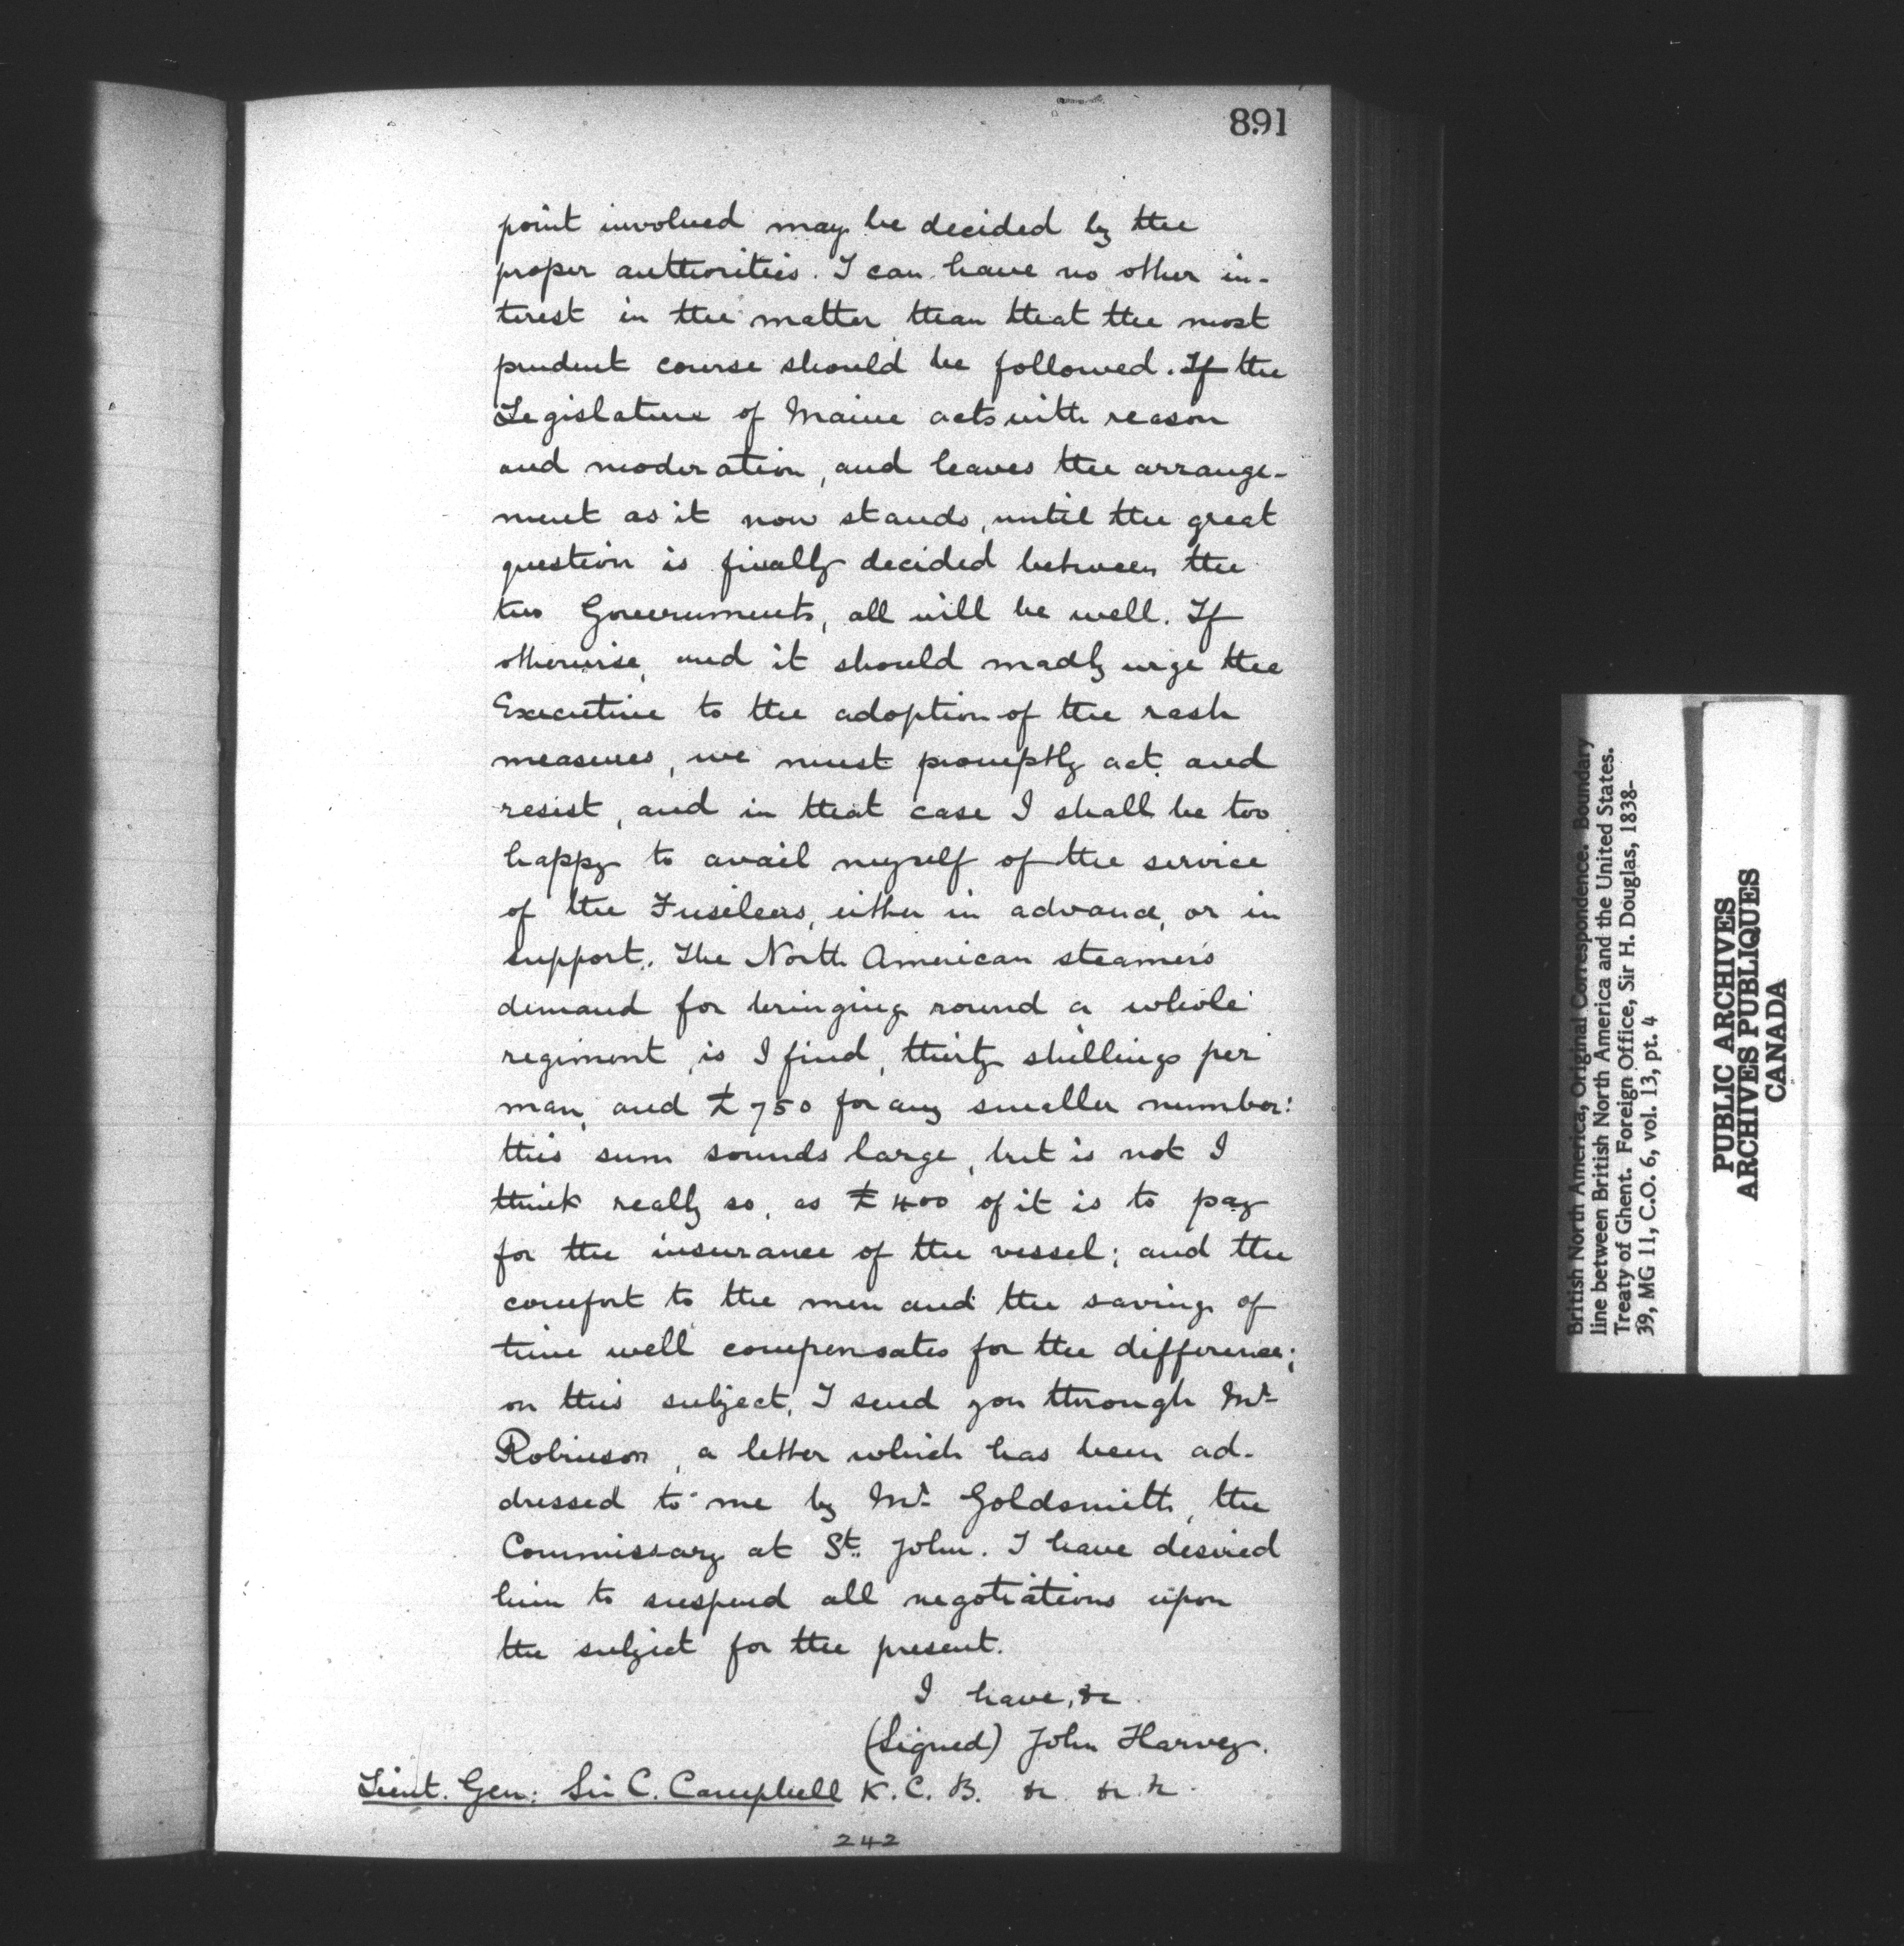 891
point involved may be decided by the
proper authorities. I can have no other in-
terest in the matter than that the most
prudent course should be followed. If the
Legislature of Maine acts with reason
and moderation, and leaves the arrange-
ment as it now stands, until the great
question is finally decided between the
two Governments, all will be well. If
otherwise, and it should madly urge the
Executive to the adoption of the rash
measures, we must promptly act and
resist, and in that case I shall be too
happy to avail myself of the service
of the Fusileers, either in advance, or in
support. The North American steamers
demand for bringing round a whole
regiment, is I find, thirty shillings per
man, and £750 for any smaller number:
this sum sounds large, but is not I
think really so, as £400 of it is to pay
for the insurance of the vessel; and the
comfort to the men and the saving of
time well compensates for the difference;
on this subject, I send you through Mr.
Robinson, a letter which has been ad-
dressed to me by Mr. Goldsmith, the
Commissary at St. John. I have desired
him to suspend all negotiations upon
the subject for the present.
I have, &c.
(Signed) John Harvey.
Lieut. Gen: Sir C. Campbell K.C.B. &c. &c. &c.
242
British North America, Original Correspondence. Boundary
line between British North America and the United States.
Treaty of Ghent. Foreign Office, Sir H. Douglas, 1838-
39, MG 11, C.O. 6, vol. 13, pt. 4
PUBLIC ARCHIVES
ARCHIVES PUBLIQUES
CANADA